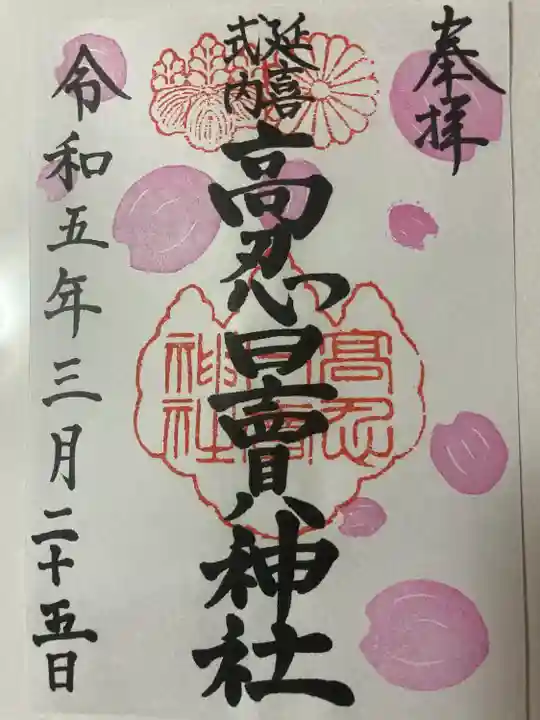 奉拝
延喜
式内
高忍日賣神社
髙忍
日賣
神社
令和五年三月二十五日